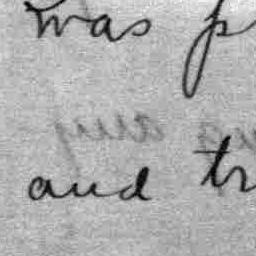 was p
and tr